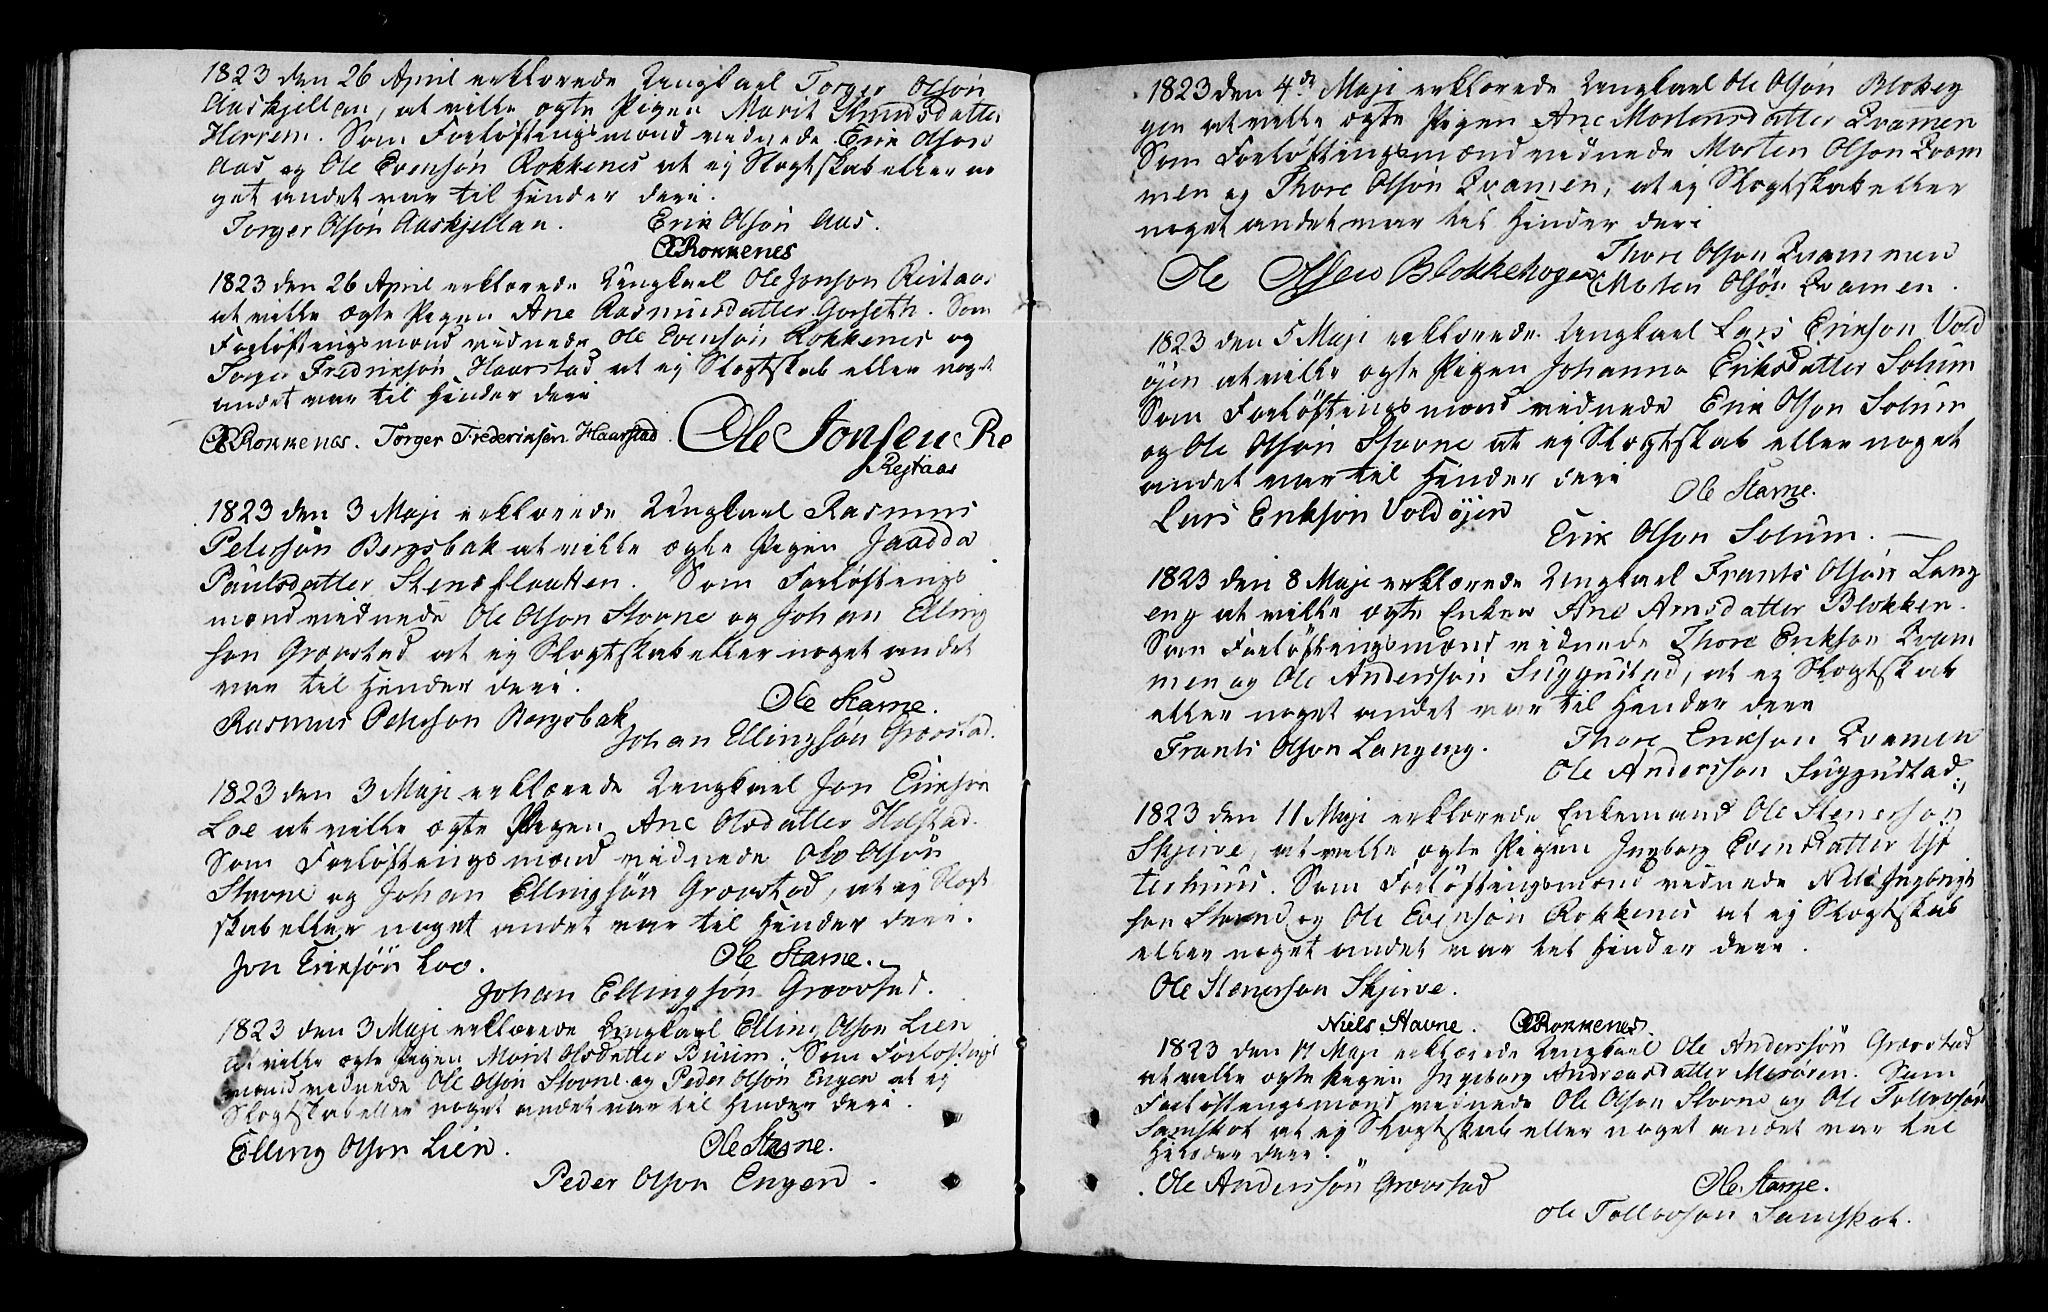 1823 den 26 April erklærede Ungkael Torger Olsøn
Aaskjellan, at ville ægte Pigen Marit Knudsdatter
Herrem. Som Forløftingsmænd vidnede Erik Olson
Aas og Ole Evensøn Rokkenes at ej Slægtskab eller no
get andet var til Hinder deri.
Torger Olsøn Aaskjellan. Erik Olsøn Aas.
OERokkenes
1823 den 26 April erklærede Ungkael Ole Jonson Restaas
at ville ægte Pigen Ane Rasmusdatter Gorseth. Som
Forløftingsmænd vidnede Ole Evensøn Rokkenes og
Torger Fredriksøn Haarstad at ej Slægtskab eller noget
andet var til Hinder deri
OERokkenes. Torger Frederiksen Haarstad. Ole Jonsen Re
Rejtaas
1823 den 3 Maji erklærede Ungkael Rasmus
Petersøn Bergsbak at ville ægte Pigen Jaadda
Paulsdatter Stensflaatten. Som Forløftings
mænd vidnede Ole Olson Stovne og Johan Elling
son Grævstad at ej Slægtskab eller noget andet
var til Hinder deri.
Ole Stavne.
Rasmus Peterson Bergsbak
Johan Ellingsøn Grævstad.
1823 den 3 Maji erklærede Ungkael Jon Eriksøn
Loe at ville ægte Pigen Ane Olsdatter Hilstad.
Som Forløftingsmænd vidnede Ole Olsøn
Stavne og Johan Ellingsøn Grævstad, at ej Slægt
skab eller noget andet var til Hinder deri.
Jon Eriksøn Loe. Ole Stavne.
Johan Ellingsøn Grævstad.
1823 den 3 Maji erklærede Ungkael Elling Olson Lien
at ville ægte Pigen Marit Olsdatter Burim. Som Forløftings
mænd vidnede Ole Olsøn Stovne og Peder Olsøn Engen at ej
Slægtskab eller noget andet var til Hinder deri.
Elling Olson Lien. Ole Stavne.
Peder Olson Engen.
1823 den 4de Maji erklærede Ungkael Ole Olsøn Blokey
gen at ville ægte Pigen Ane Mortensdatter Qvamen
Som Forløftingsmænd vidnede Morten Olson Qvam
men og Thore Olsøn Qvamen, at ej Slægtskab eller
noget andet var til Hinder deri
Thore Olson Qvammen
Ole Olsen Blokkehogen Moten Olsøn Qvamen.
1823 den 5 Maji erklærede Ungkael Lars Erikson Vold
øjen at ville ægte Pigen Johanna Eriksdatter Solum
Som Forløftingsmænd vidnede Erik Olson Solum
og Ole Olsøn Stovne at ej Slægtskab eller noget
andet var til Hinder deri
Ole Stavne.
Lars Erikson Voldøjen
Erik Olson Solum.
1823 den 8 Maji erklærede Ungkael Frants Olsøn Lang
eng at ville ægte Enken Ane Arnsdatter Blokken.
Som Forløftingsmænd vidnede Thore Erikson Qvam
men og Ole Andersøn Suggustad, at ej Slægtskab
eller noget andet var til Hinder deri
Frants Olson Langeng. Thore Erikson Qvamen
Ole Andersson Suggustad.
1823 den 11 Maji erklærede Enkemand Ole Stenerson
Skjerve, at ville ægte Pigen Ingborg Evensdatter Øs
terhuus. Som Forløftingsmænd vidnede Niels Ingbrigt
son Stovne og Ole Evensøn Rokkenes at ej Slægtskab
eller noget andet var til Hinder deri.
Ole Stenerson Skjerve.
Niels Stavne. OERokkenes.
1823 den 17 Maji erklærede Ungkael Ole Anderssøn Grævstad
at ville ægte Pigen Ingeborg Andreasdatter Morøren. Som
Forløftingsmænd vidnede Ole Olson Stovne og Ole Tollevsøn
Samskot at ej Slægtskab eller noget andet var til
Hinder deri.
Ole Anderssøn Grævstad Ole Stavne.
Ole Tollevsøn Samskot.